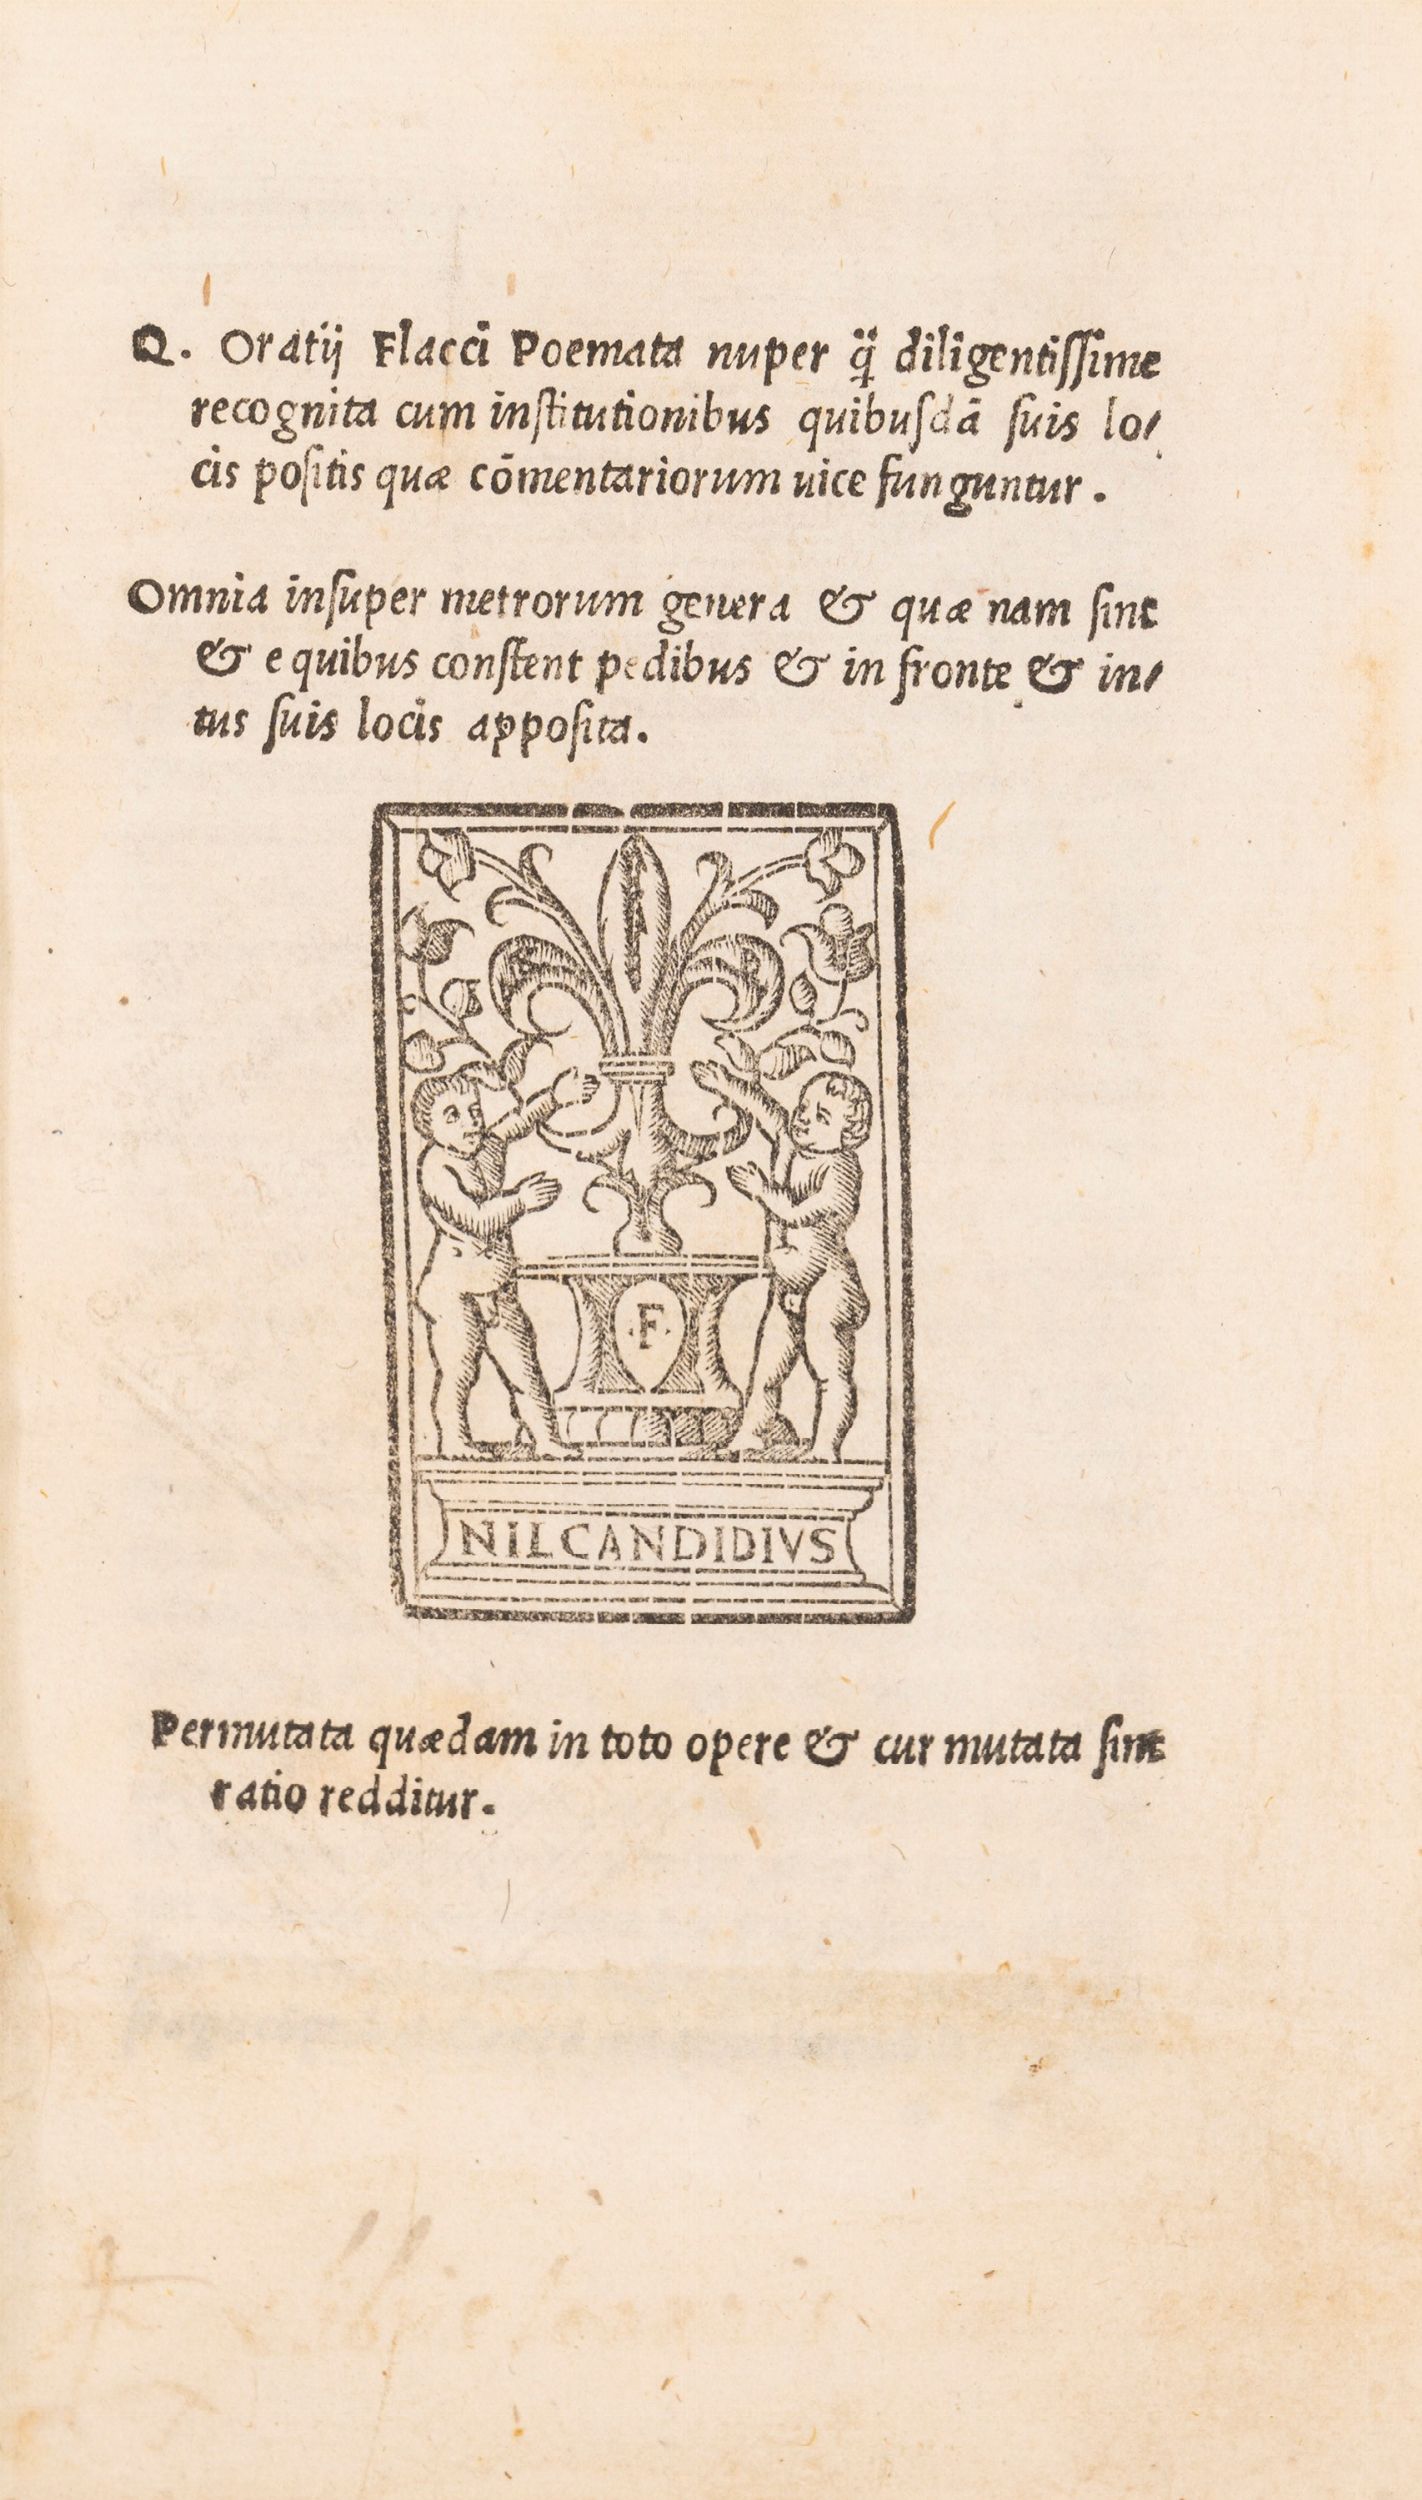 Q. Oratij Flacci Poemata nuper q̃ diligentiſſime
recognita cum inſtitutionibus quibuſdā ſuis lo/
cis poſitis quæ cōmentariorum uice funguntur.
Omnia inſuper metrorum genera & quæ nam ſint
& e quibus conſtent pedibus & in fronte & in/
tus ſuis locis appoſita.
·F·
NIL CANDIDIVS
Permutata quædam in toto opere & cur mutata ſint
ratio redditur.